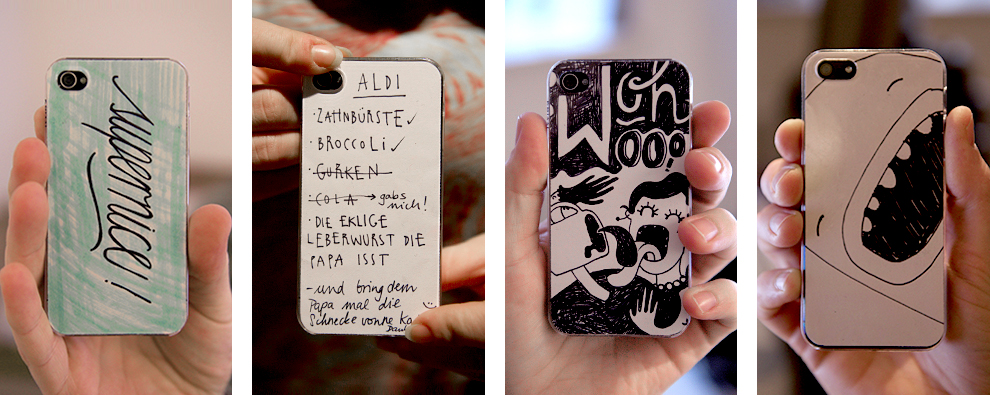 supernice!
ALDI
·ZAHNBÜRSTE ✓
·BROCCOLi ✓
·GURKEN
·COLA → gabs
nich!
·DIE EKLIGE
LEBERWURST DIE
PAPA ISST
-und bring dem
Papa mal die
Schnecke vonne Ka